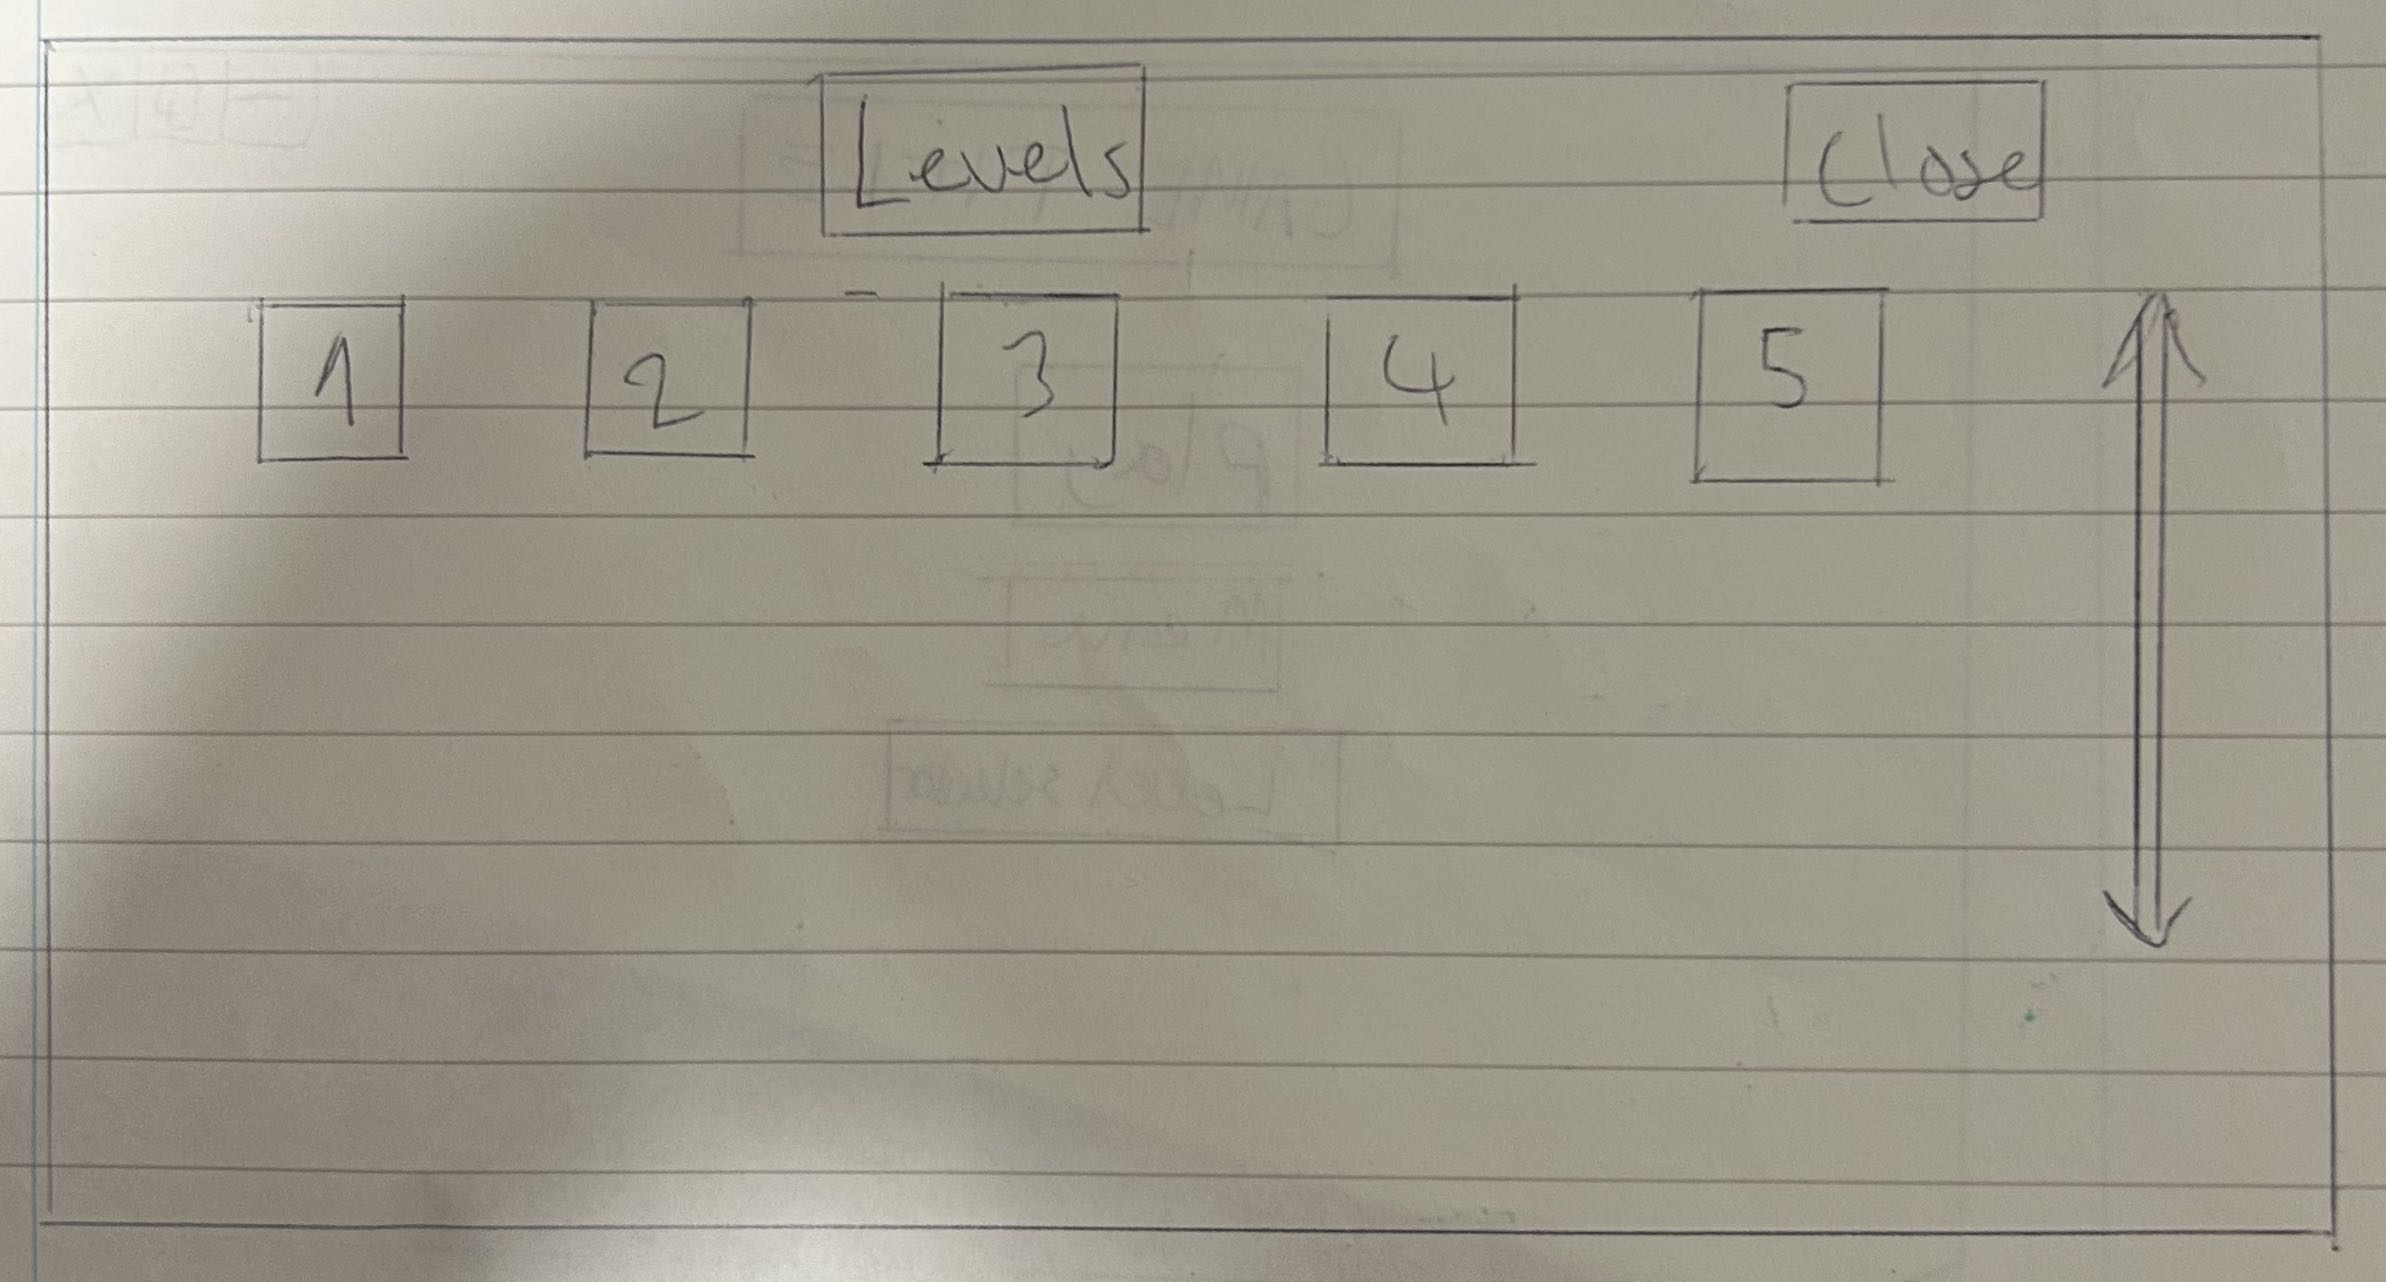 Levels
Close
1 2 3 4 5